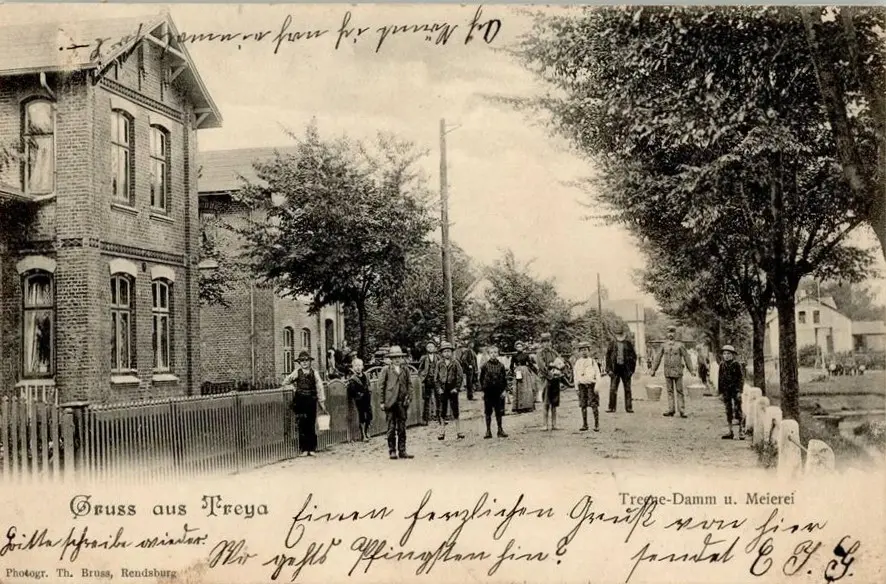 Gruss aus Treya
Treene-Damm u. Meierei
Einen herzlichen Gruß von hier
Bitte schreibe wieder.
Wo gehts Pfingsten hin?
sendet E. J. G.
Photogr. Th. Bruss, Rendsburg